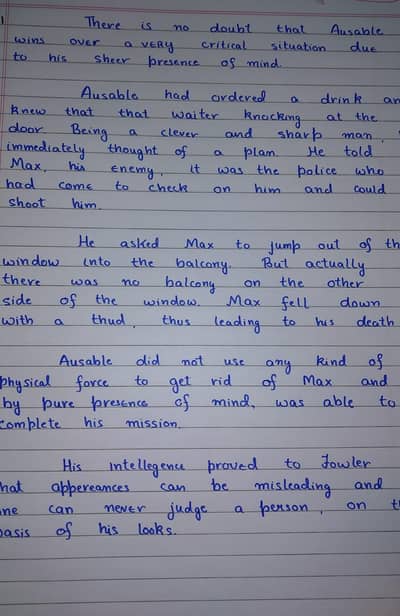 There is no doubt that Ausable
wins over a VERY critical situation due
to his sheer presence of mind.
Ausable had ordered a drink an
knew that that waiter knocking at the
door. Being a clever and sharp man,
immediately thought of a plan. He told
Max, his enemy, it was the police who
had come to check on him and could
shoot him.
He asked Max to jump out of th
window into the balcony. But actually
there was no balcony on the other
side of the window. Max fell down
with a thud, thus leading to his death
Ausable did not use any kind of
physical force to get rid of Max and
by pure presence of mind, was able to
complete his mission.
His intellegence proved to Fowler
hat appereances can be misleading and
ne can never judge a person, on t
basis of his looks.